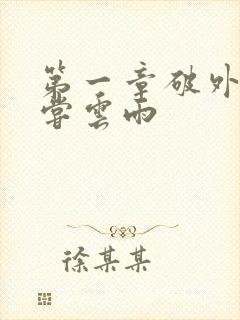 第一章破外
嘗雲雨
徐某某